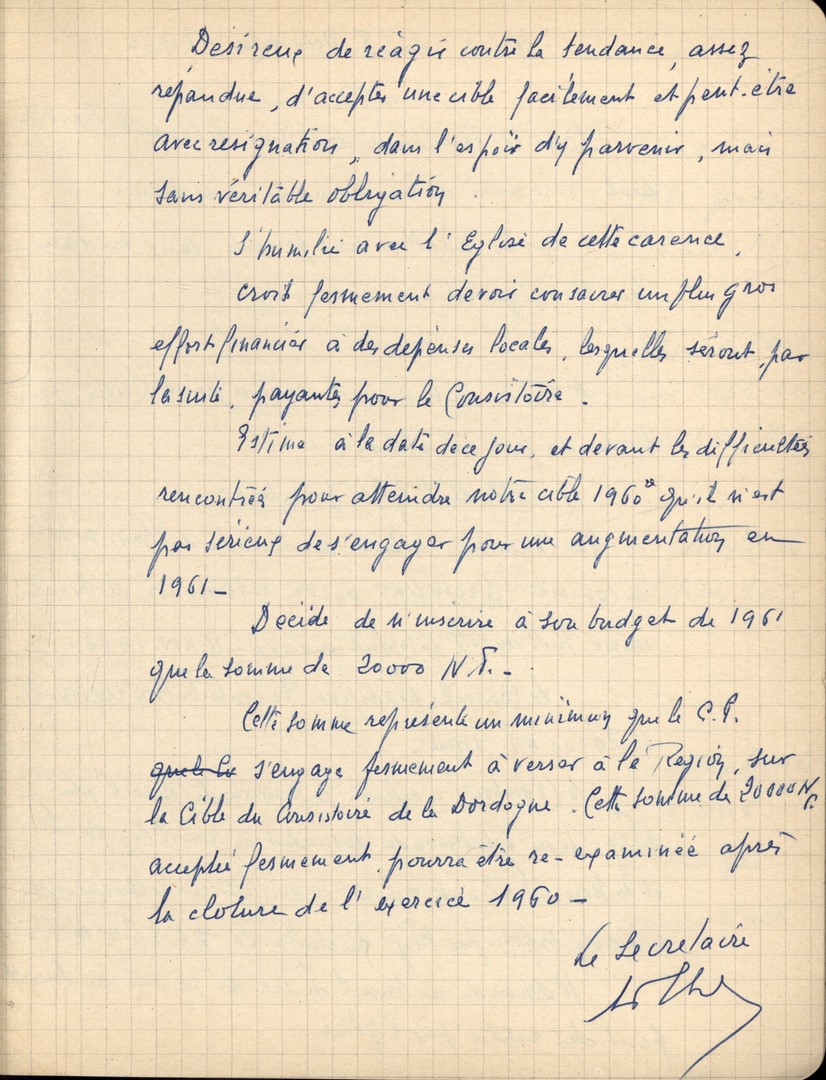 Désireux de réagir contre la tendance, assez
répandue, d'accepter une cible facilement et peut-être
avec résignation, dans l'espoir d'y parvenir, mais
sans véritable obligation
S'humilie avec l'Eglise de cette carence,
croit fermement devoir consacrer un plus gros
effort financier à des dépenses locales, lesquelles seront, par
la suite, payantes pour le Consistoire.
Estime à la date de ce jour, et devant les difficultés
rencontrées pour atteindre notre cible 1960 qu'il n'est
pas sérieux de s'engager pour une augmentation en
1961-
Décide de n'inscrire à son budget de 1961
que la somme de 20000 N.F.-
Cette somme représente un minimum que le C.P.
que le Co s'engage fermement à verser à la Région, sur
la Cible du Consistoire de la Dordogne. Cette somme de 20000 N.F.
acceptée fermement, pourra être re-examinée après
la cloture de l'exercice 1960-
Le Secretaire